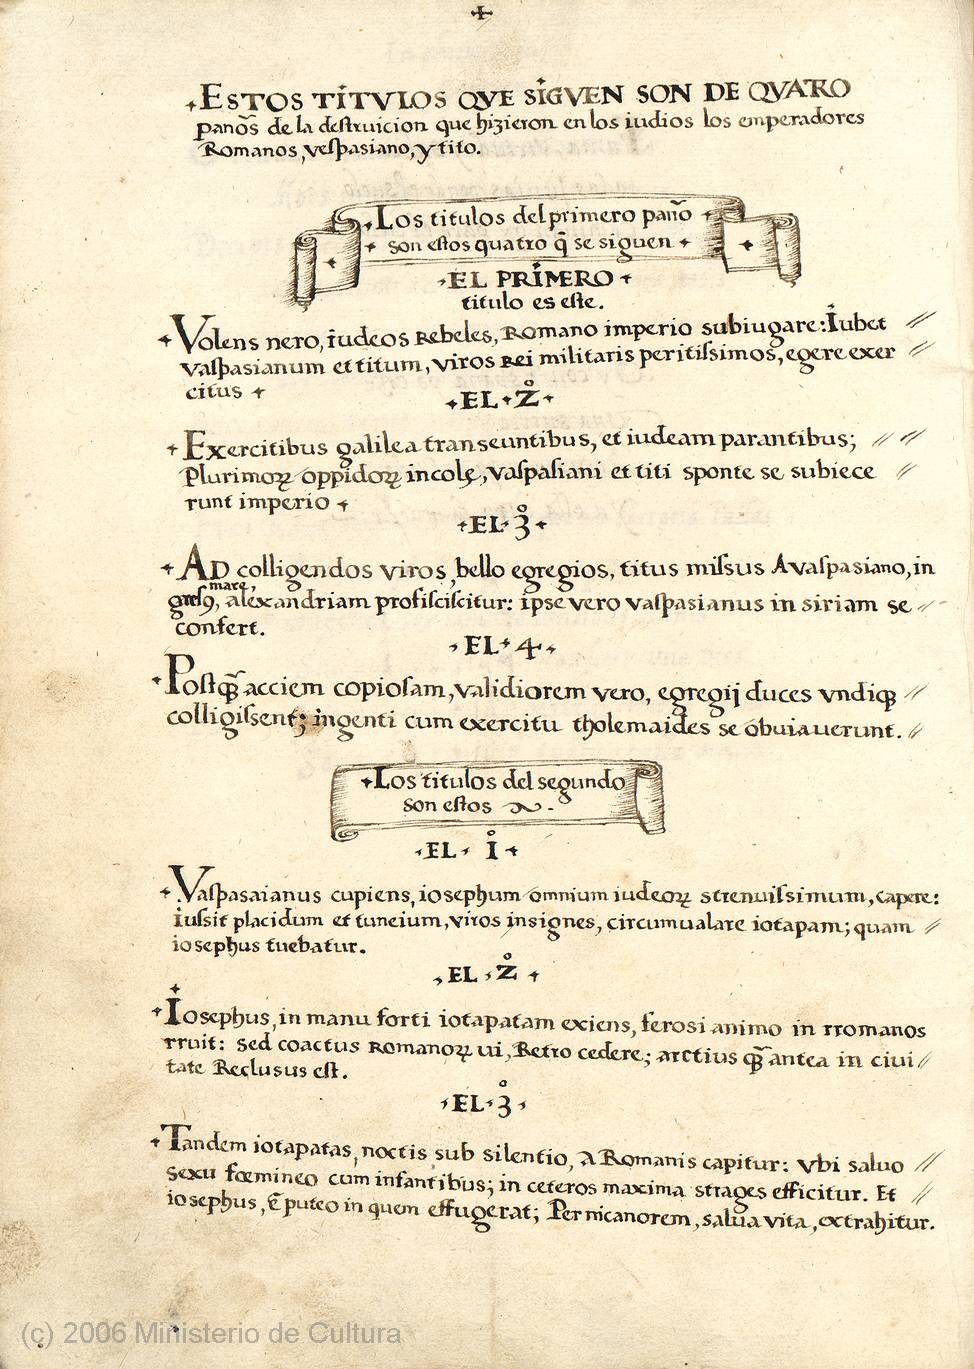 +
+ESTOS TITVLOS QVE SIGVEN SON DE QVATRO
panõs de la destruicion que hizieron en los iudios los emperadores
Romanos, vespasiano, y tito.
+Los titulos del primero pañõ +
+ son estos quatro q̃ se siguen +
+EL PRIMERO+
titulo es este.
+Volens nero, iudeos Rebeles, Romano imperio subiugare: Iubet //
vaspasianum et titum, viros Rei militaris peritissimos, egere exer //
citus +
+EL+2º+
+Exercitibus galilea transeuntibus, et iudeam parantibus; // //
Plurimoꝝ oppidoꝝ incolę, vaspasiani et titi sponte se subiece //
runt imperio +
+EL·3º+
+AD colligendos viros, bello egregios, titus missus A vaspasiano, in
mare,
gresꝰ, alexandriam profisciscitur: ipse vero vaspasianus in siriam se //-
confert.
+EL+4+
+Postq̃ acciem copiosam, validiorem vero, egregij duces vndiqꝫ //
colligissent; ingenti cum exercitu tholemaides se obuiauerunt. //
+Los titulos del segundo
son estos ~.
+EL+ 1º+
+Vaspasaianus cupiens, iosephum omnium iudeoꝝ strenuissimum, capere:
iussit placidum et tuncium, viros insignes, circumualare iotapam; quam //
iosephus tuebatur.
+EL+2º+
+Iosephus, in manu forti iotapatam exiens, ferosi animo in rromanos
rruit: sed coactus Romanoꝝ ui, Retro cedere; arctius q̃ antea in ciui //
tate Reclusus est.
+EL+3º+
+Tandem iotapatas, noctis sub silentio, A Romanis capitur: vbi saluo //
sexu fœmineo cum infantibus; in ceteros maxima strages efficitur. Et //
iosephus, ẽ puteo in quem effugerat; Per nicanorem, salua vita, extrahitur.
(c) 2006 Ministerio de Cultura